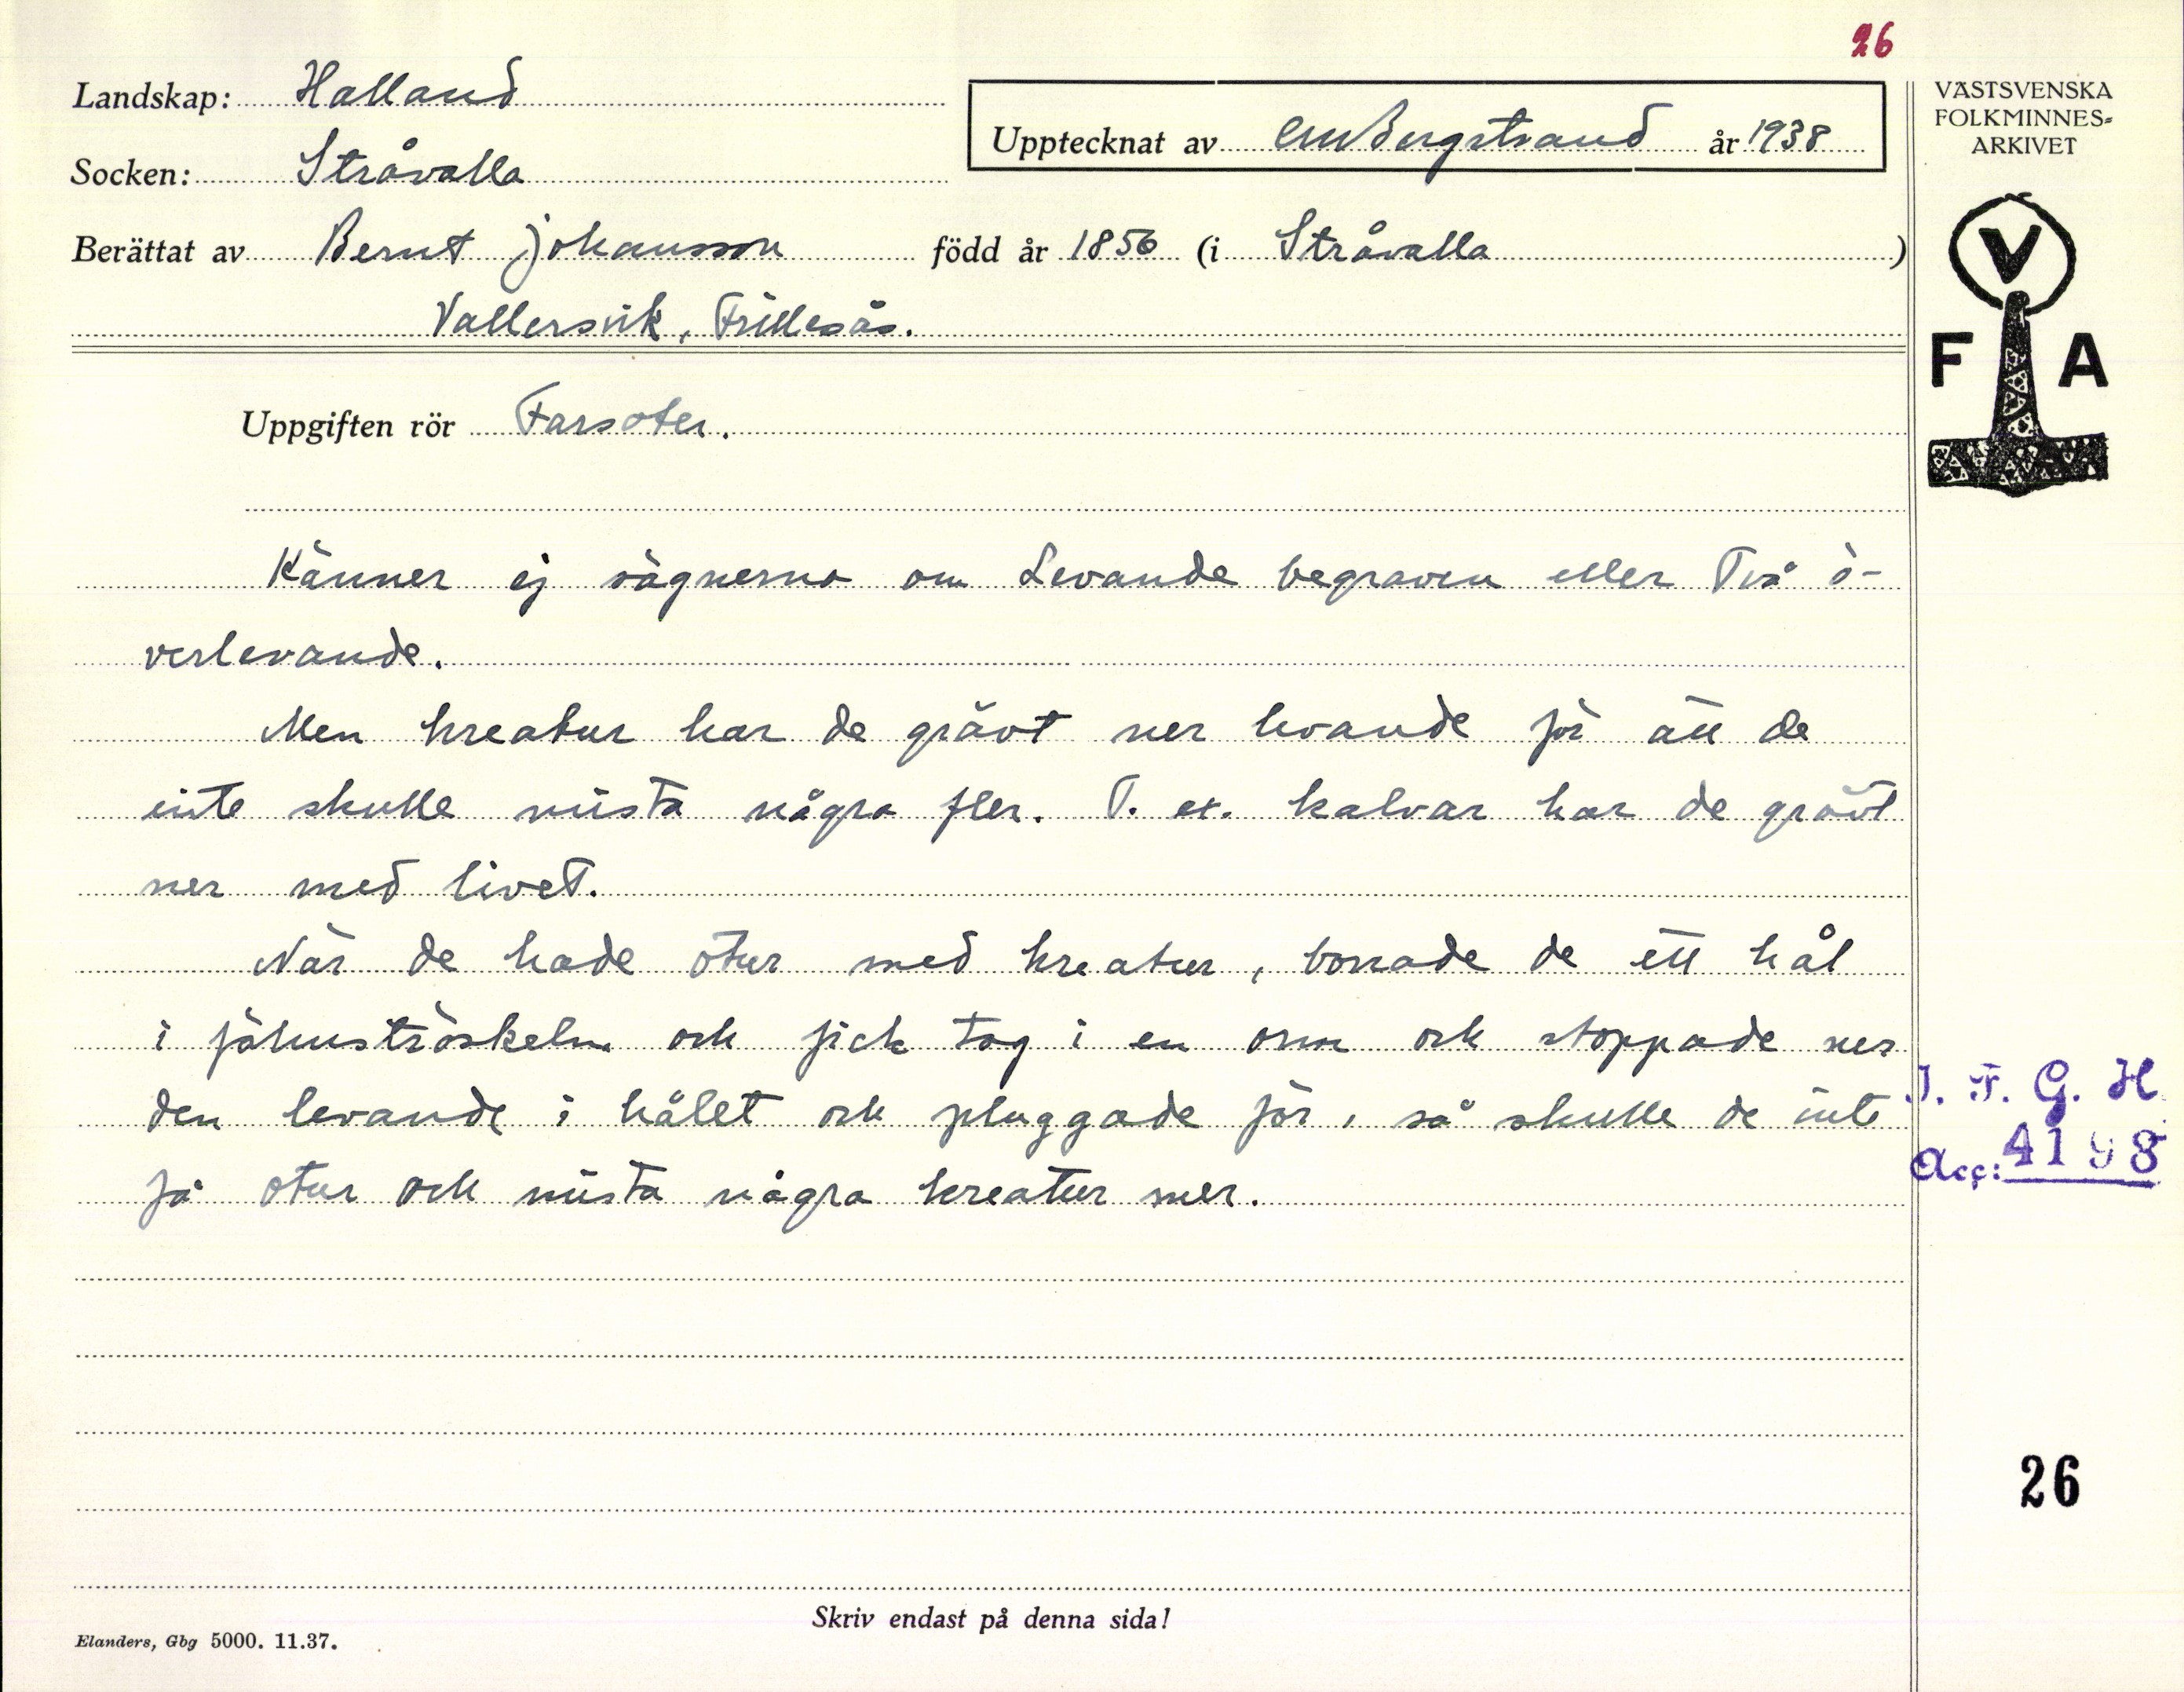 26
Landskap: Halland
Upptecknat av CMBergstrand år 1938
VÄSTSVENSKA
FOLKMINNES-
ARKIVET
Socken: Stråvalla
Berättat av Bernt Johansson född år 1856 (i Stråvalla)
Vallersvik, Frillesås.
V
F A
Uppgiften rör Farsoter.
Känner ej sägnerna om Levande begraven eller Två ö-
verlevande.
Men kreatur har de grävt ner levande för att de
inte skulle mista några fler. T. ex. kalvar har de grävt
ner med livet.
När de hade otur med kreatur, borrade de ett hål
i fähuströskeln och fick tag i en orm och stoppade ner
den levande i hålet och pluggade för, så skulle de inte
få otur och mista några kreatur mer.
I. F. G. H.
Acc: 4198
26
Skriv endast på denna sida!
Elanders, Gbg 5000. 11.37.